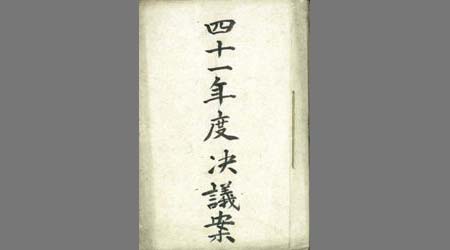 四十一年度决議案